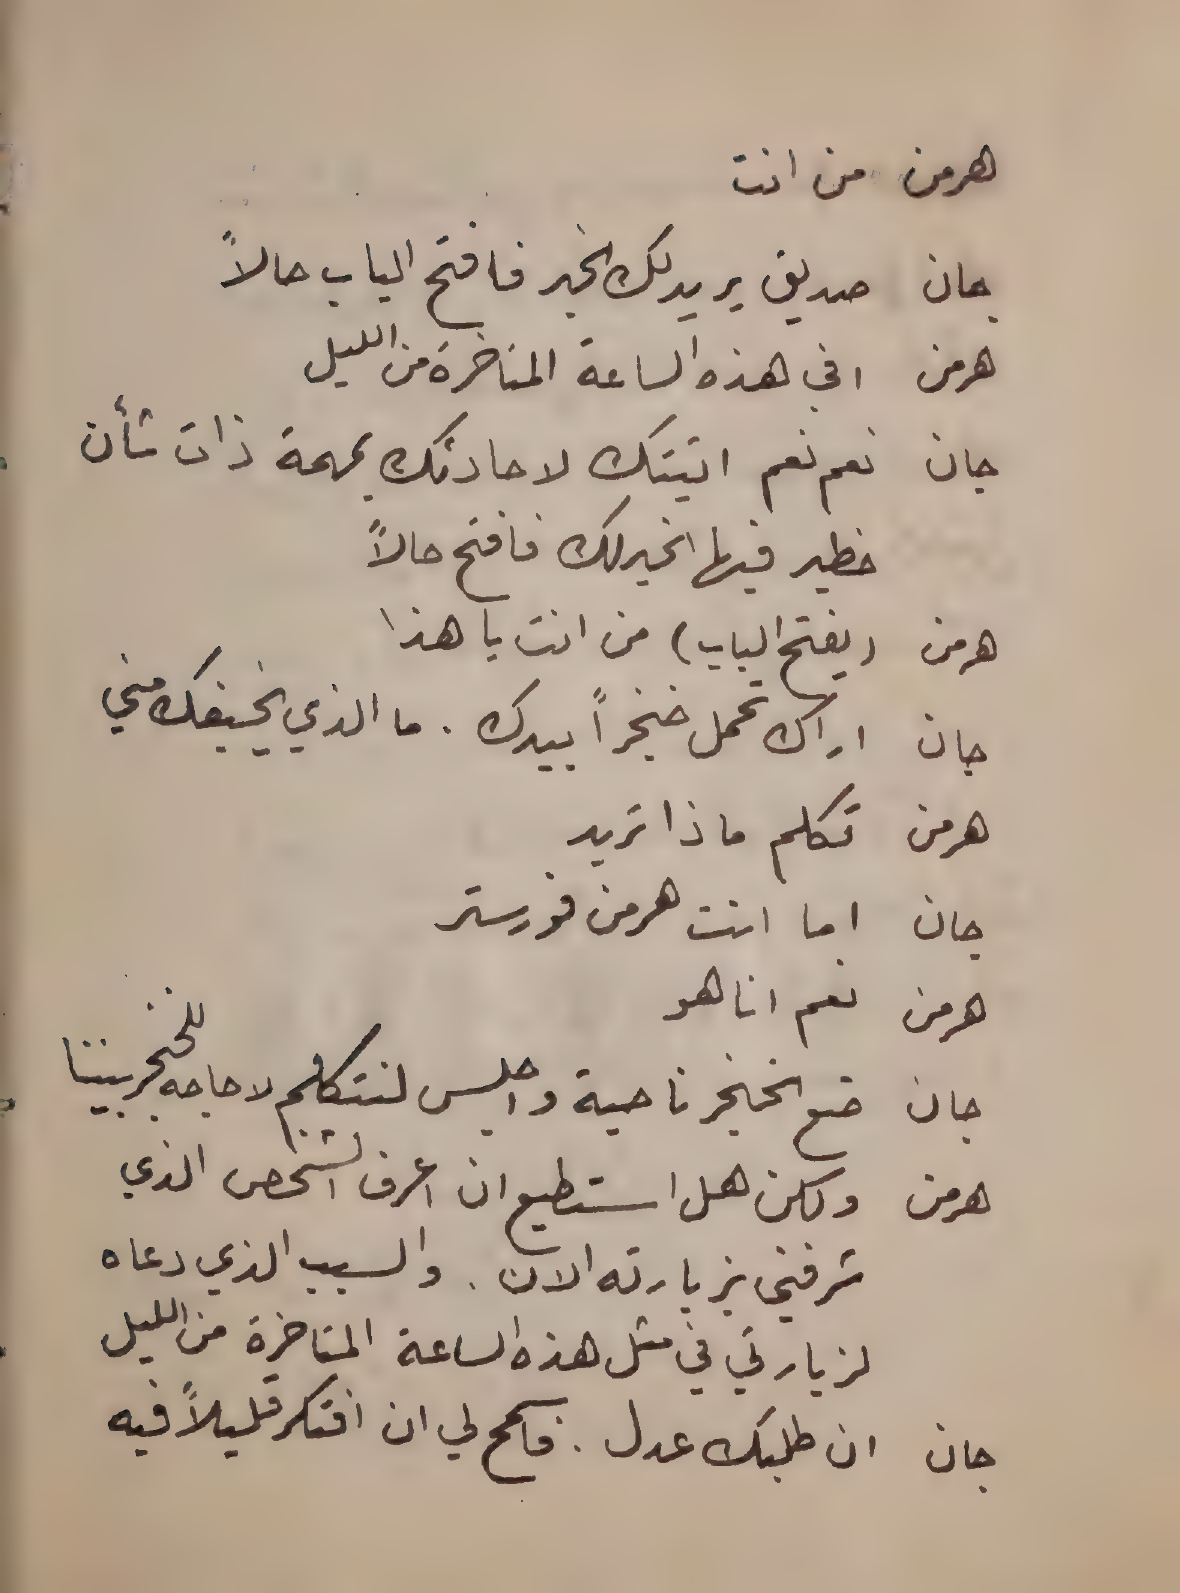 هرمن من انت
جان صديق يريد لك الخير فافتح الباب حالاً
هرمن افي هذه الساعة المتاخرة من الليل
جان نعم نعم اتيتك لاحادثك بمهمة ذات شأن
خطير فيها الخير لك فافتح حالاً
هرمن (يفتح الباب) من انت يا هذا
جان اراك تحمل خنجراً بيدك . ما الذي يخيفك مني
هرمن تكلم ماذا تريد
جان اما انت هرمن فورستر
هرمن نعم انا هو
جان ضع الخنجر ناحية واجلس لنتكلم لا حاجه للخنجر بيننا
هرمن ولكن هل استطيع ان اعرف الشخص الذي
شرفني بزيارته الان . والسبب الذي دعاه
لزيارتي في مثل هذه الساعة المتاخرة من الليل
جان ان طلبك عدل . فاسمح لي ان افتكر قليلاً فيه